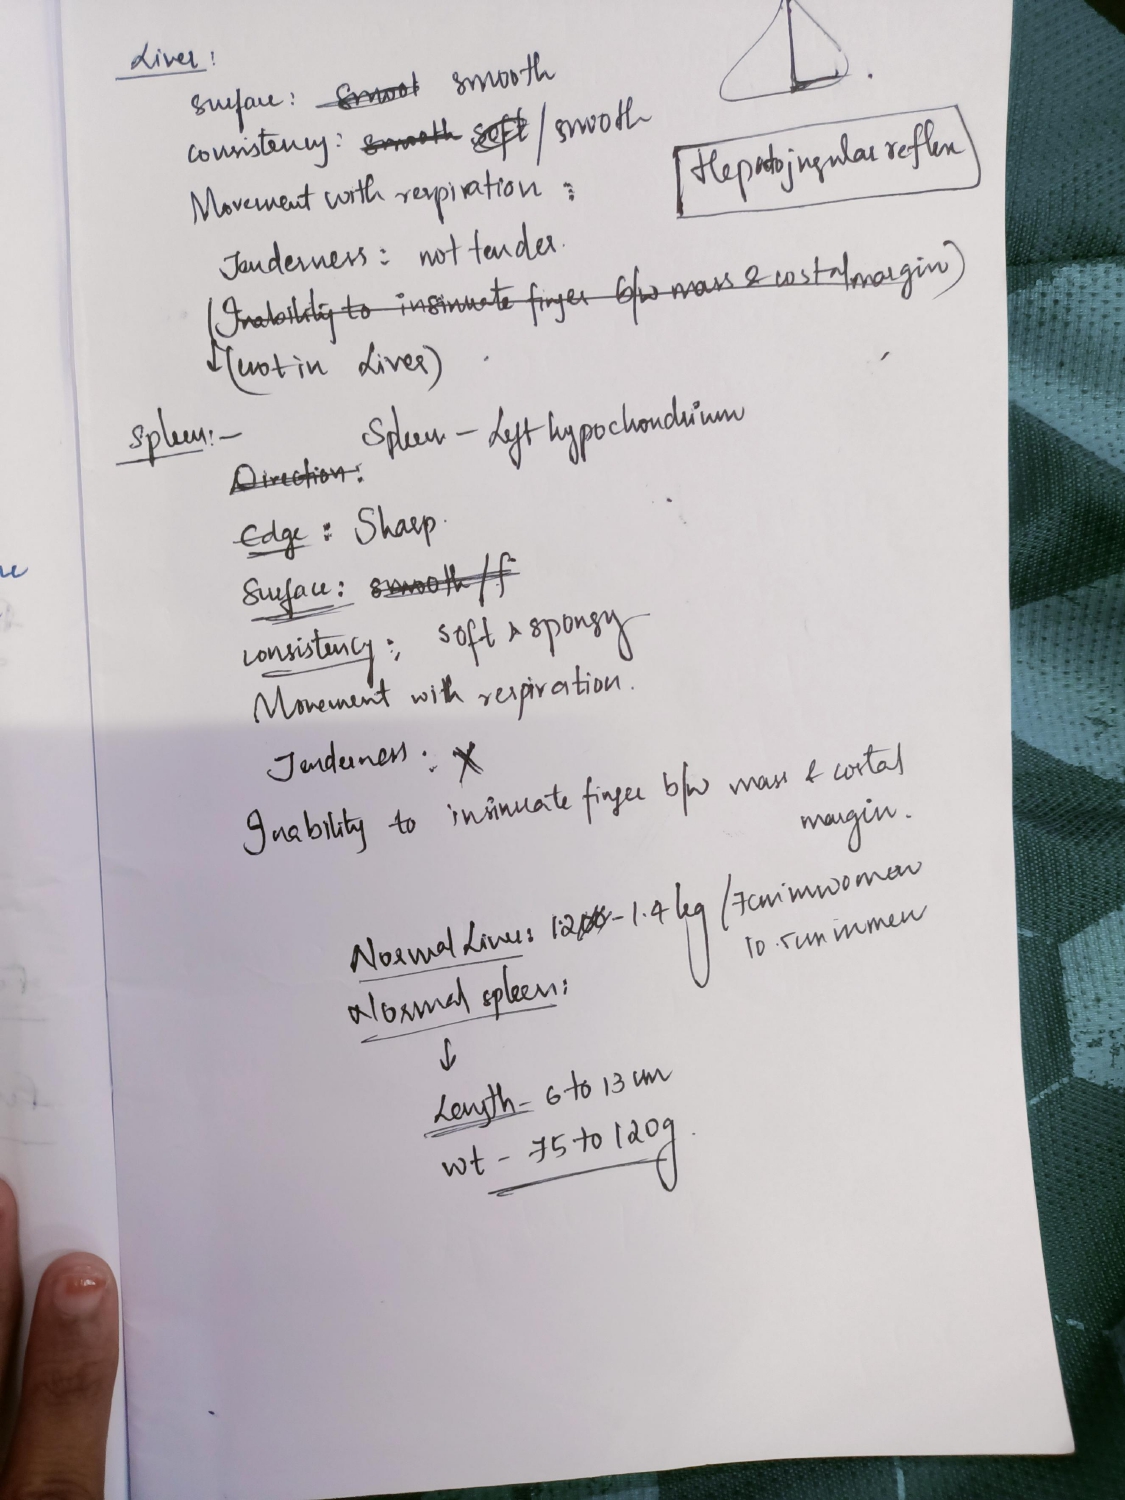 Liver:
Surface: smoot smooth
consistency: smooth soft/smooth
Hepatojugular reflex
Movement with respiration :
Tenderness: not tender.
(Inability to insinuate finger b/w mass & costal margin)
↓(not in Liver)
Spleen:-
Spleen - Left hypochondrium
Direction:
Edge : Sharp.
Surface: smooth/f
consistency: soft & spongy
Movement with respiration.
Tenderness : X
Inability to insinuate finger b/w mass & costal
margin.
Normal Liver: 1.2 - 1.4 kg / 7cm in women
10.5cm in men
Normal spleen:
↓
Length - 6 to 13 cm
wt - 75 to 120g.